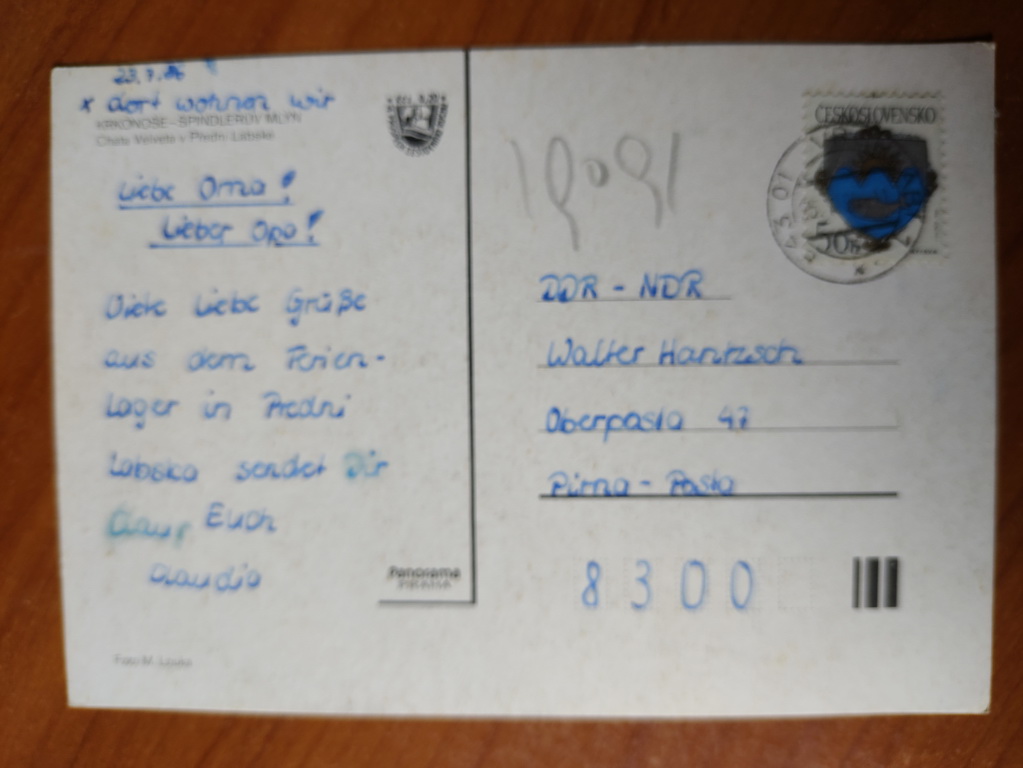 23.7.86
x dort wohnen wir
KRKONOŠE - ŠPINDLERŮV MLÝN
Chata Velveta v Přední Labské
Liebe Oma!
Lieber Opa!
Viele liebe Grüße
aus dem Ferien-
lager in Predni
Labska sendet Dir
Euch
Claudia
Panorama
PRAHA
Foto M.
ČESKOSLOVENSKO
543 01
DDR - NDR
Walter Hantzsch
Oberposta 47
Pirna - Posta
8300